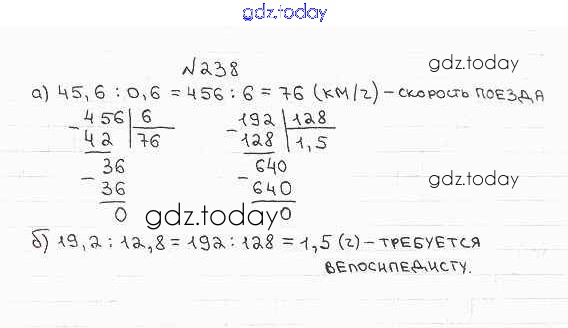 gdz.today
№238
gdz.today
а) 45,6 : 0,6 = 456 : 6 = 76 (км/ч) – скорость поезда
456 | 6
- 42 | 76
36
- 36
0
192 | 128
- 128 | 1,5
640
- 640
0
gdz.today
gdz.today
б) 19,2 : 12,8 = 192 : 128 = 1,5 (ч) – требуется
велосипедисту.
gdz.today